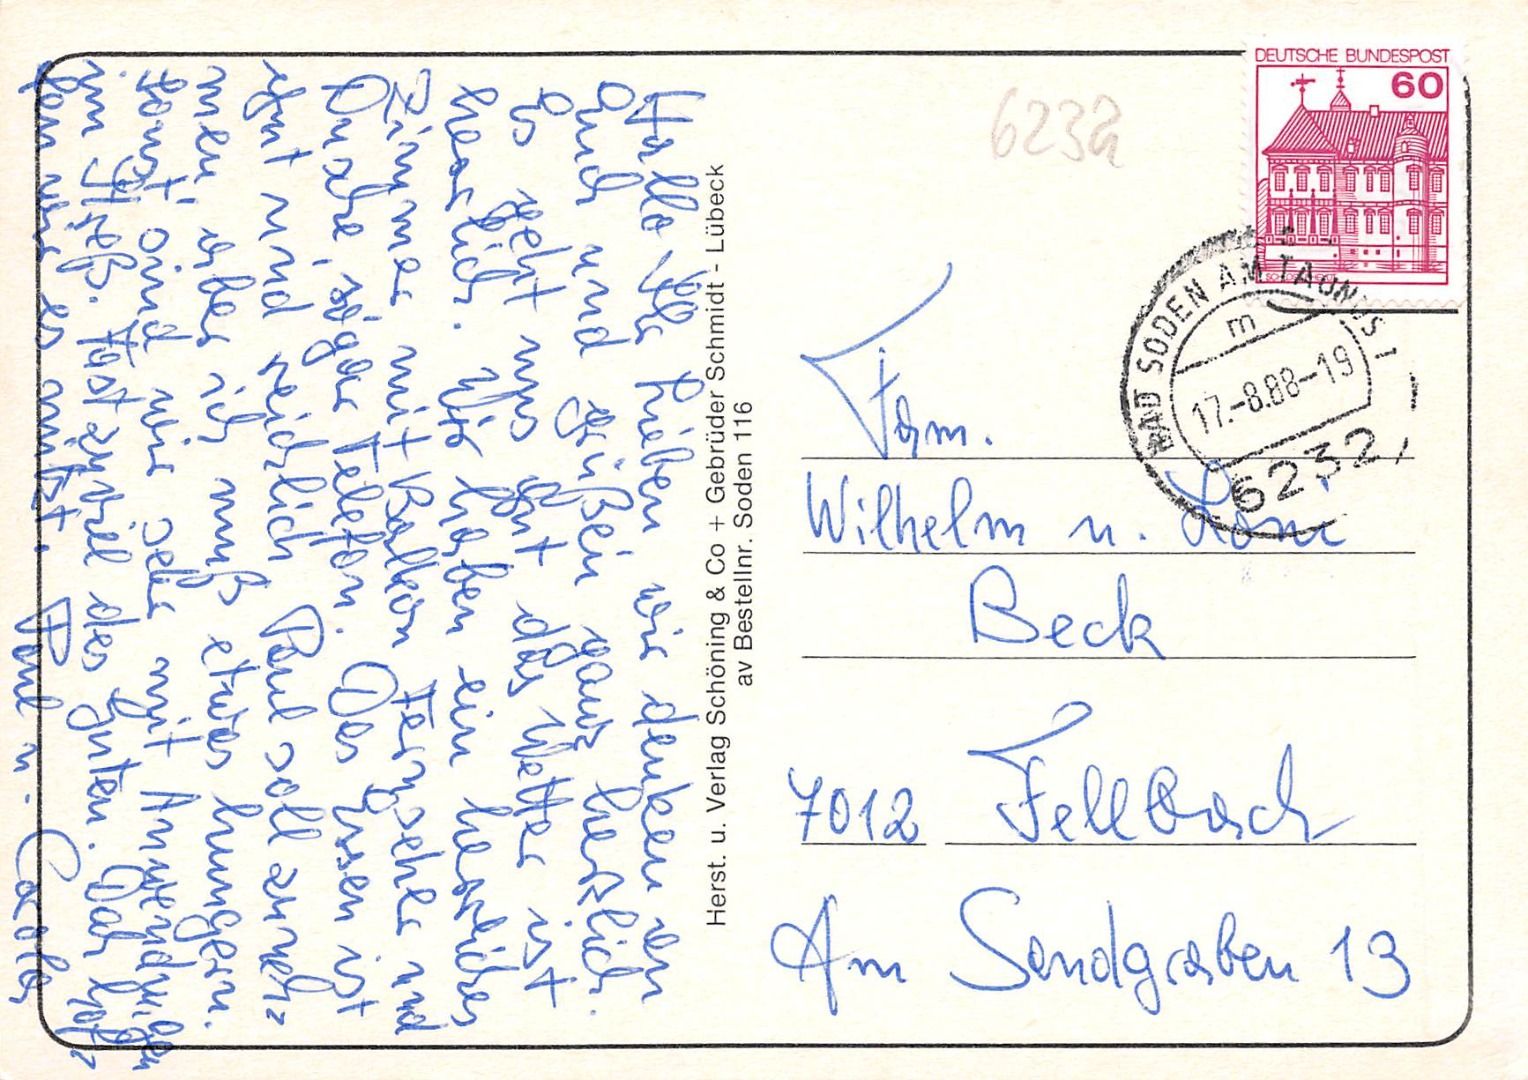 Hallo Ihr Lieben wir denken an
Euch und grüßen ganz herzlich.
Es geht uns gut das Wetter ist
herrlich. Wir haben ein herrliches
Zimmer mit Balkon Fernseher und
Dusche, sogar Telefon. Das Essen ist
gut und reichlich Paul soll zuneh=
men, aber ich muß etwas hungern.
Sonst sind wir sehr mit Anwendungen
im Streß. Fast zuviel des guten. Doch hof=
fen wir es nützt. Paul u.
Herst. u. Verlag Schöning & Co + Gebrüder Schmidt - Lübeck
av Bestellnr. Soden 116
6232
DEUTSCHE BUNDESPOST
60
BAD SODEN AM TAUNUS 1
m
17.-8.88-19
6232
Fam.
Wilhelm u. Loni
Beck
7012 Fellbach
Am Sandgraben 13